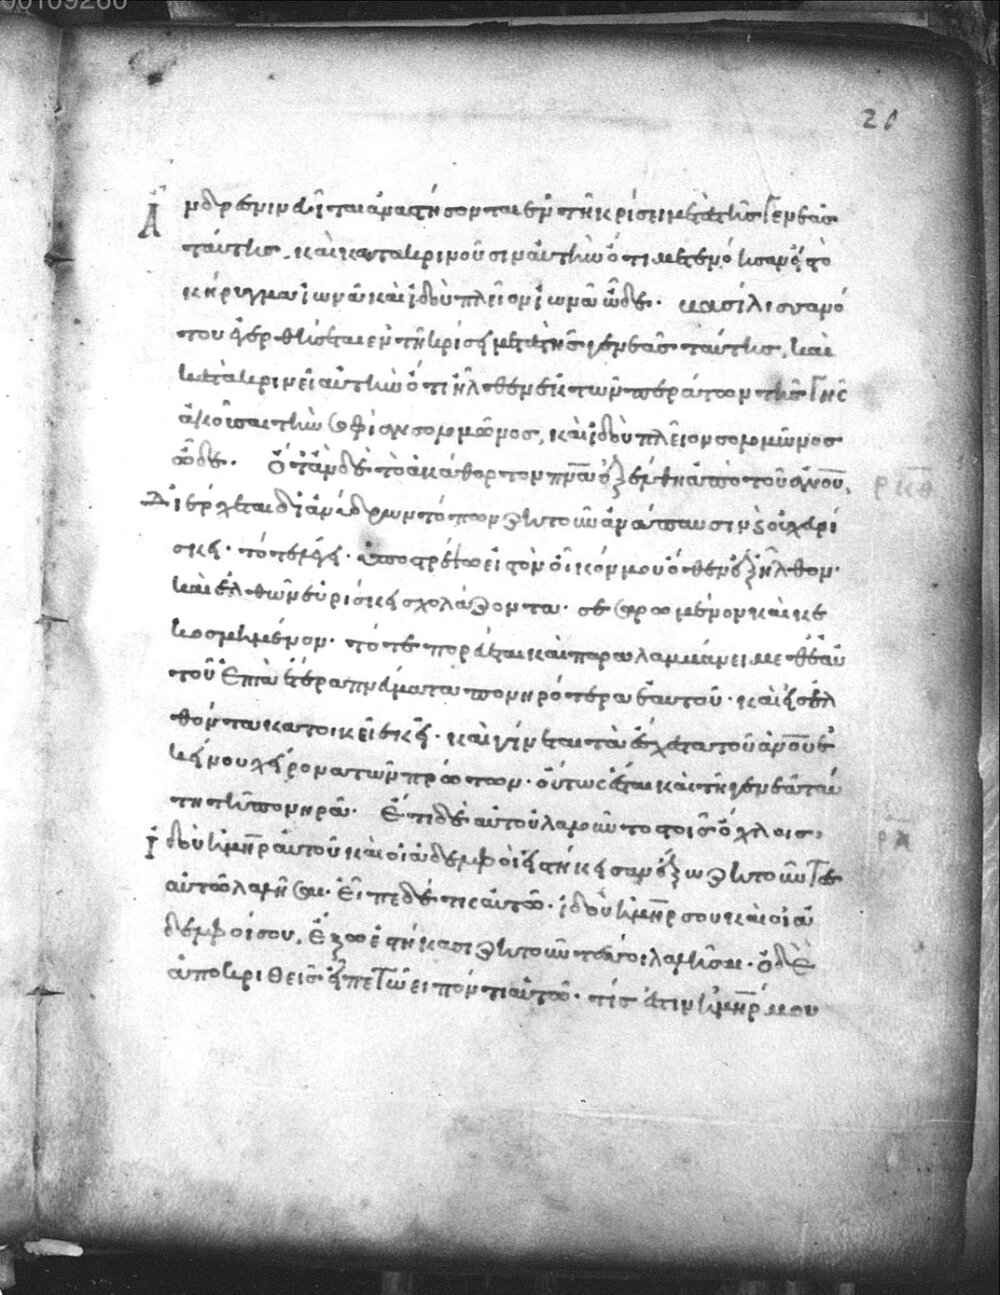 00109260
20
Ἄνδρες νινευῖται ἀναστήσονται ἐν τῆ κρίσει μετὰ τῆς γενεᾶς
ταύτης, καὶ κατακρινοῦσιν αὐτὴν ὅτι μετενόησαν εἰς τὸ
κήρυγμα ἰωνᾶ καὶ ἰδοὺ πλεῖον ἰωνᾶ ὧδε. βασίλισσα νό
του ἐγερθήσεται ἐν τῆ κρίσει μετὰ τῆς γενεᾶς ταύτης, καὶ
κατακρινεῖ αὐτὴν ὅτι ἦλθεν ἐκ τῶν περάτων τῆς γῆς
ἀκοῦσαι τὴν σοφίαν σολομῶνος, καὶ ἰδοὺ πλεῖον σολομῶνος
ὧδε. Ὅταν δὲ τὸ ἀκάθαρτον πνα ἐξέλθη ἀπὸ τοῦ ανου,
ρκθ
Διέρχεται δι ἀνύδρων τόπων ζητοῦν ἀνάπαυσιν καὶ οὐχ εὑρί
σκει. τότε λέγει. ἐπιστρέψω εἰς τὸν οἶκόν μου ὅθεν ἐξῆλθον.
καὶ ἐλθὼν εὑρίσκει σχολάζοντα. σεσαρωμένον καὶ κε
κοσμημένον. τότε πορεύεται καὶ παραλαμβάνει μεθ ἑαυ
τοῦ ἑπτὰ ἕτερα πνεύματα πονηρότερα ἑαυτοῦ. καὶ εἰσελ
θόντα κατοικεῖ ἐκεῖ. καὶ γίνεται τὰ ἔσχατα τοῦ ανου ἐ
κείνου χείρονα τῶν πρώτων. οὕτως ἔσται καὶ τῆ γενεᾶ ταύ
τη τῆ πονηρᾶ. Ἔτι δὲ αὐτοῦ λαλοῦντος τοῖς ὄχλοις,
ρλ
Ἰδοὺ ἡ μηρ αὐτοῦ καὶ οἱ ἀδελφοὶ εἱστήκεισαν ἔξω ζητοῦντες
αὐτῶ λαλῆσαι. Εἶπε δέ τις αὐτῶ. ἰδοὺ ἡ μηρ σου καὶ οἱ ἀ
δελφοί σου, ἔξω ἑστήκασι ζητοῦντές σοι λαλῆσαι. ὁ δὲ
ἀποκριθεὶς εἶπε τῶ εἰπόντι αὐτῶ. τίς ἐστιν ἡ μηρ μου